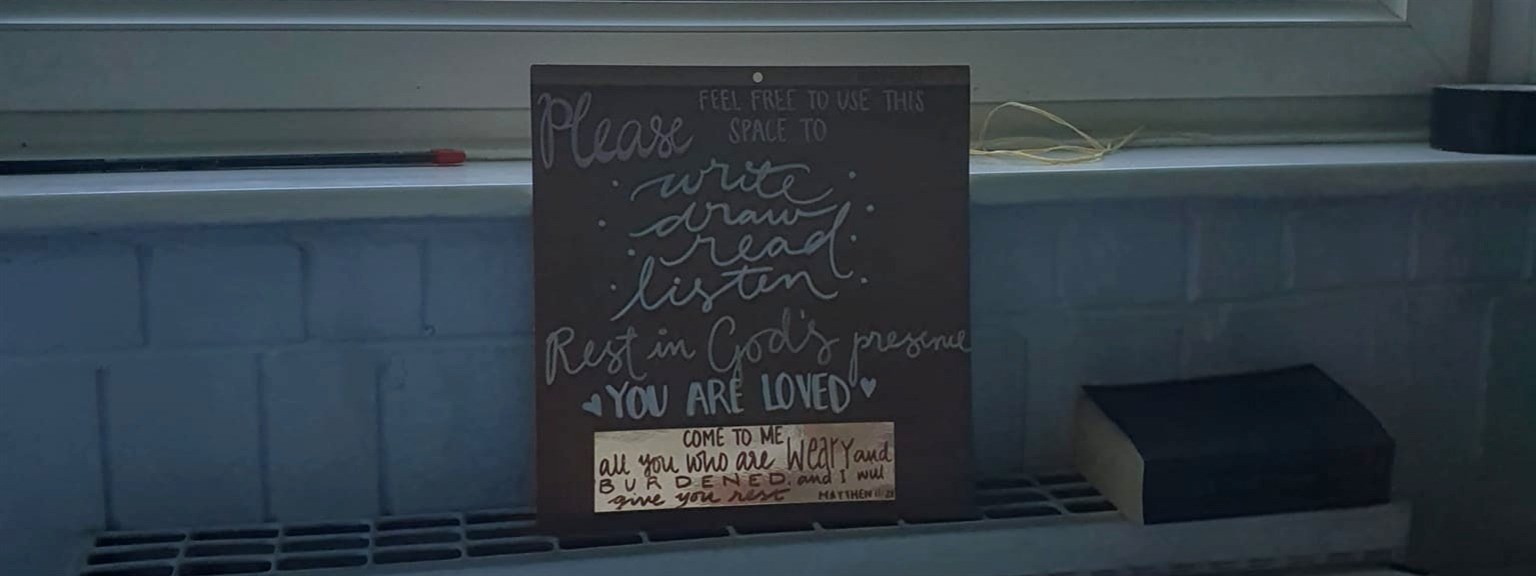 Please FEEL FREE TO USE THIS
SPACE TO
write
draw
read
listen
Rest in God's presence
YOU ARE LOVED
COME TO ME
all you who are weary and
BURDENED. and I will
give you rest MATTHEW 11:28